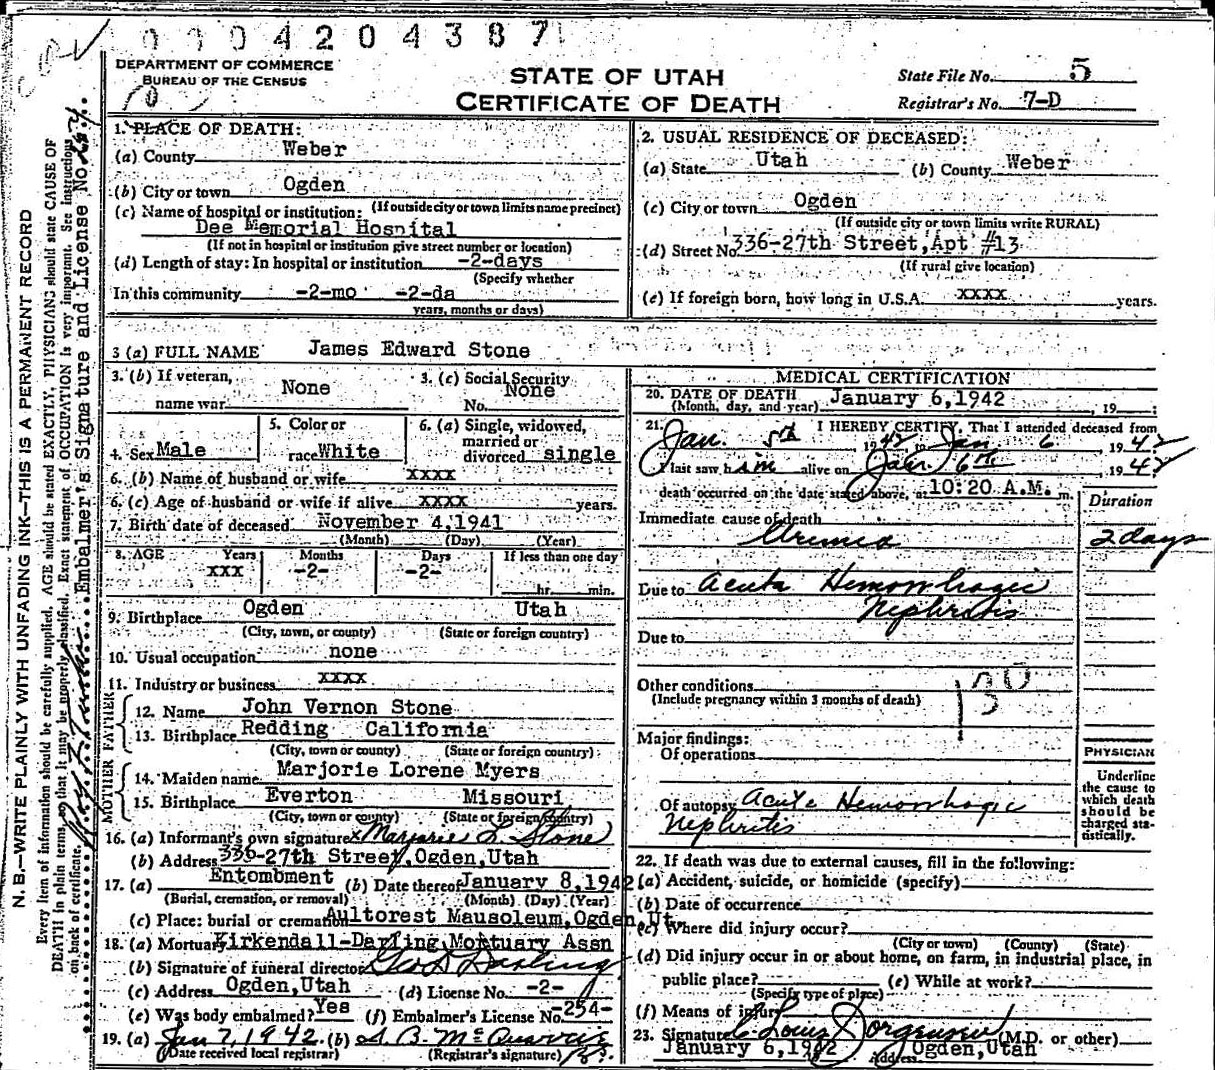 0 0 0 4 2 0 4 3 8 7
DEPARTMENT OF COMMERCE
BUREAU OF THE CENSUS
STATE OF UTAH
CERTIFICATE OF DEATH
State File No. 5
Registrar's No. 7-D
1. PLACE OF DEATH:
(a) County Weber
(b) City or town Ogden
(If outside city or town limits name precinct)
(c) Name of hospital or institution:
Dee Memorial Hospital
(If not in hospital or institution give street number or location)
(d) Length of stay: In hospital or institution -2-days
(Specify whether
In this community -2-mo -2-da
years, months or days)
2. USUAL RESIDENCE OF DECEASED:
(a) State Utah (b) County Weber
(c) City or town Ogden
(If outside city or town limits write RURAL)
(d) Street No. 336-27th Street, Apt #13
(If rural give location)
(e) If foreign born, how long in U.S.A. xxxx years.
3 (a) FULL NAME James Edward Stone
3. (b) If veteran, name war None
3. (c) Social Security No. None
4. Sex Male
5. Color or race White
6. (a) Single, widowed, married or divorced single
6. (b) Name of husband or wife xxxx
6. (c) Age of husband or wife if alive xxxx years.
7. Birth date of deceased November 4,1941
(Month) (Day) (Year)
8. AGE Years Months Days If less than one day
xxx -2- -2- hr. min.
9. Birthplace Ogden Utah
(City, town, or county) (State or foreign country)
10. Usual occupation none
11. Industry or business xxxx
FATHER
12. Name John Vernon Stone
13. Birthplace Redding California
(City, town or county) (State or foreign country)
MOTHER
14. Maiden name Marjorie Lorene Myers
15. Birthplace Everton Missouri
(City, town or county) (State or foreign country)
16. (a) Informant's own signature x Marjorie L. Stone
(b) Address 336-27th Street, Ogden, Utah
17. (a) Entombment (b) Date thereof January 8,1942
(Burial, cremation, or removal) (Month) (Day) (Year)
(c) Place: burial or cremation Aultorest Mausoleum, Ogden, Ut.
18. (a) Mortuary Kirkendall-Darling Mortuary Assn
(b) Signature of funeral director Geo D Darling
(c) Address Ogden, Utah (d) License No. -2-
(e) Was body embalmed? Yes (f) Embalmer's License No. -254-
19. (a) Jan 7, 1942 (b) A. B. McQuarrie
(Date received local registrar) (Registrar's signature)
MEDICAL CERTIFICATION
20. DATE OF DEATH January 6,1942, 19 ;
(Month, day, and year)
21. I HEREBY CERTIFY, That I attended deceased from
Jan. 5th 1942 Jan 6 1942
I last saw him alive on Jan. 6th 1942
death occurred on the date stated above, at 10:20 A.M. m.
Duration
Immediate cause of death
Uremia 2 days
Due to Acute Hemorrhagic
Nephritis
Due to
Other conditions
(Include pregnancy within 3 months of death)
130
Major findings:
Of operations
Of autopsy Acute Hemorrhagic
Nephritis
PHYSICIAN
Underline
the cause to
which death
should be
charged sta-
tistically.
22. If death was due to external causes, fill in the following:
(a) Accident, suicide, or homicide (specify)
(b) Date of occurrence
(c) Where did injury occur?
(City or town) (County) (State)
(d) Did injury occur in or about home, on farm, in industrial place, in
public place? (e) While at work?
(Specify type of place)
(f) Means of injury
23. Signature C. Louis Jorgensen (M.D. or other)
January 6, 1942 Address Ogden, Utah
N. B.—WRITE PLAINLY WITH UNFADING INK—THIS IS A PERMANENT RECORD
Every item of information should be carefully supplied. AGE should be stated EXACTLY, PHYSICIANS should state CAUSE OF
DEATH in plain terms, so that it may be properly classified. Exact statement of OCCUPATION is very important. See instructions
on back of certificate.
Embalmer's Signature and License No.